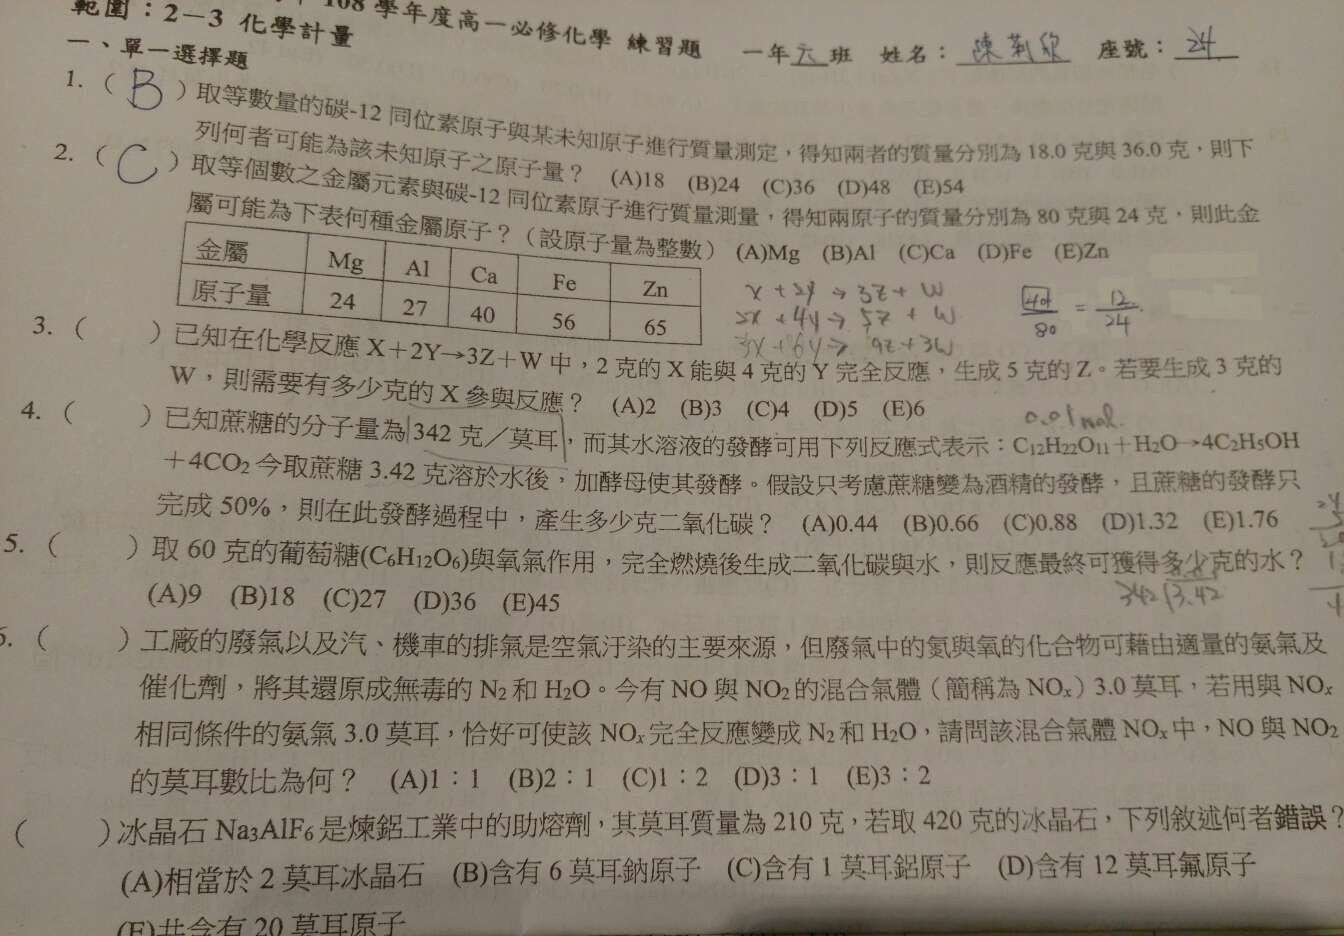 範圍：2－3 化學計量
108 學年度高一必修化學 練習題 一年六班 姓名： 座號：24
一、單一選擇題
1.（B）取等數量的碳-12 同位素原子與某未知原子進行質量測定，得知兩者的質量分別為 18.0 克與 36.0 克，則下
列何者可能為該未知原子之原子量？ (A)18 (B)24 (C)36 (D)48 (E)54
2.（C）取等個數之金屬元素與碳-12 同位素原子進行質量測量，得知兩原子的質量分別為 80 克與 24 克，則此金
屬可能為下表何種金屬原子？（設原子量為整數） (A)Mg (B)Al (C)Ca (D)Fe (E)Zn
金屬 Mg Al Ca Fe Zn
原子量 24 27 40 56 65
X + 2Y → 3Z + W
2X + 4Y → 5Z + W
3X + 6Y → 9Z + 3W
40/80 = 12/24
3.（ ）已知在化學反應 X＋2Y→3Z＋W 中，2 克的 X 能與 4 克的 Y 完全反應，生成 5 克的 Z。若要生成 3 克的
W，則需要有多少克的 X 參與反應？ (A)2 (B)3 (C)4 (D)5 (E)6
0.01 mol
4.（ ）已知蔗糖的分子量為 342 克／莫耳，而其水溶液的發酵可用下列反應式表示：C12H22O11＋H2O→4C2H5OH
＋4CO2 今取蔗糖 3.42 克溶於水後，加酵母使其發酵。假設只考慮蔗糖變為酒精的發酵，且蔗糖的發酵只
完成 50%，則在此發酵過程中，產生多少克二氧化碳？ (A)0.44 (B)0.66 (C)0.88 (D)1.32 (E)1.76
5.（ ）取 60 克的葡萄糖(C6H12O6)與氧氣作用，完全燃燒後生成二氧化碳與水，則反應最終可獲得多少克的水？
(A)9 (B)18 (C)27 (D)36 (E)45
342 3.42
6.（ ）工廠的廢氣以及汽、機車的排氣是空氣汙染的主要來源，但廢氣中的氮與氧的化合物可藉由適量的氨氣及
催化劑，將其還原成無毒的 N2 和 H2O。今有 NO 與 NO2 的混合氣體（簡稱為 NOx）3.0 莫耳，若用與 NOx
相同條件的氨氣 3.0 莫耳，恰好可使該 NOx 完全反應變成 N2 和 H2O，請問該混合氣體 NOx 中，NO 與 NO2
的莫耳數比為何？ (A)1：1 (B)2：1 (C)1：2 (D)3：1 (E)3：2
（ ）冰晶石 Na3AlF6 是煉鋁工業中的助熔劑，其莫耳質量為 210 克，若取 420 克的冰晶石，下列敘述何者錯誤？
(A)相當於 2 莫耳冰晶石 (B)含有 6 莫耳鈉原子 (C)含有 1 莫耳鋁原子 (D)含有 12 莫耳氟原子
(E)共含有 20 莫耳原子